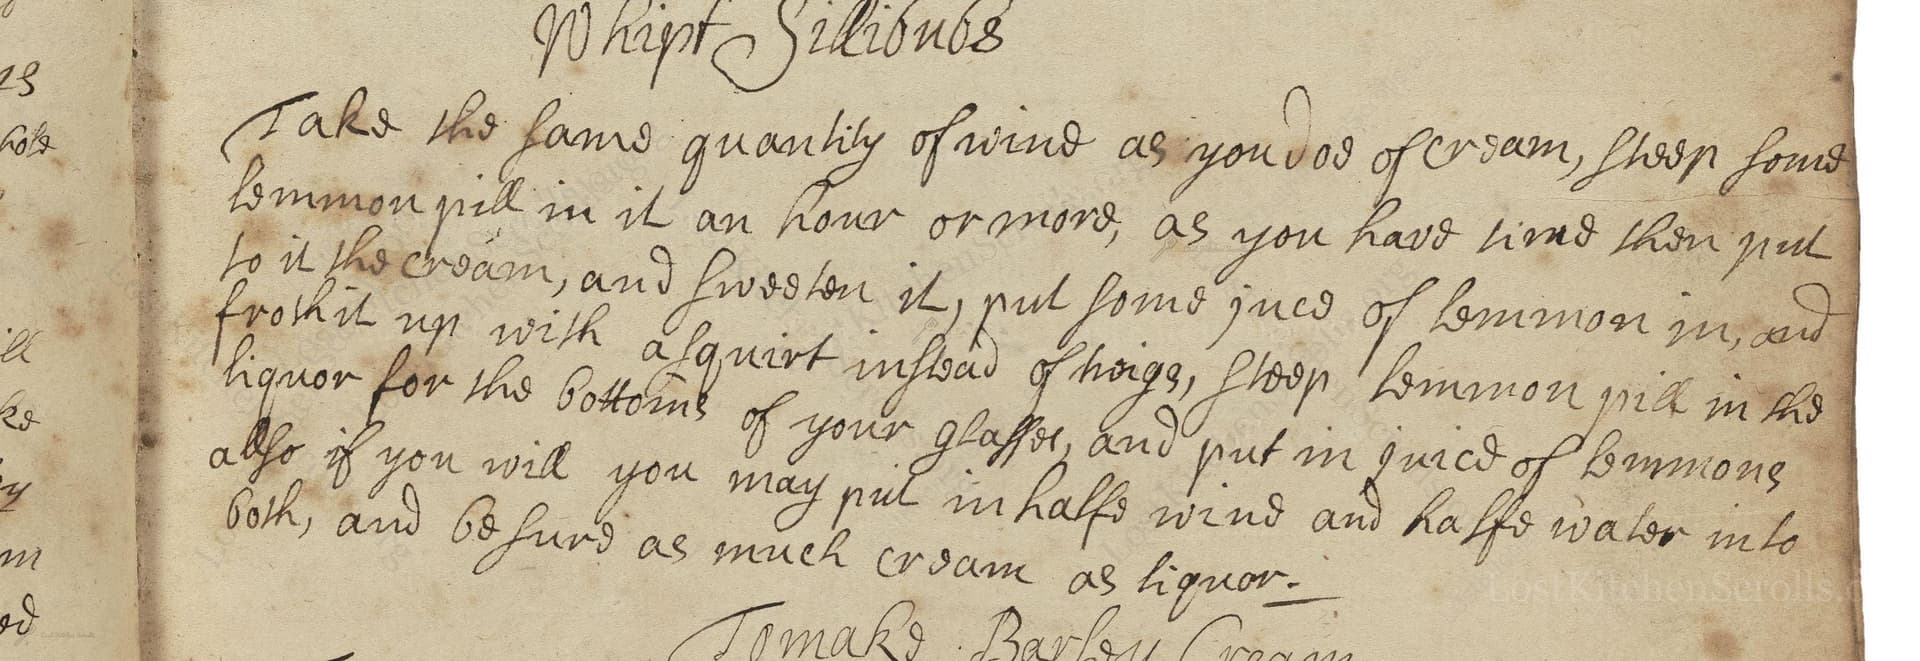 Whipt Sillibubs
Take the same quantity of wine as you doe of cream, steep some
lemmon pill in it an hour or more, as you have time then put
to it the cream, and sweeten it, put some juce of lemmon in, and
froth it up with a squirt instead of twigs, steep lemmon pill in the
liquor for the bottoms of your glasses, and put in juice of lemmons
allso if you will you may put in halfe wine and halfe water into
both, and be sure as much cream as liquor.
To make Barley Cream
LostKitchenScrolls.